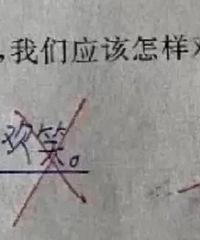 ,我们应该怎样
欢笑。